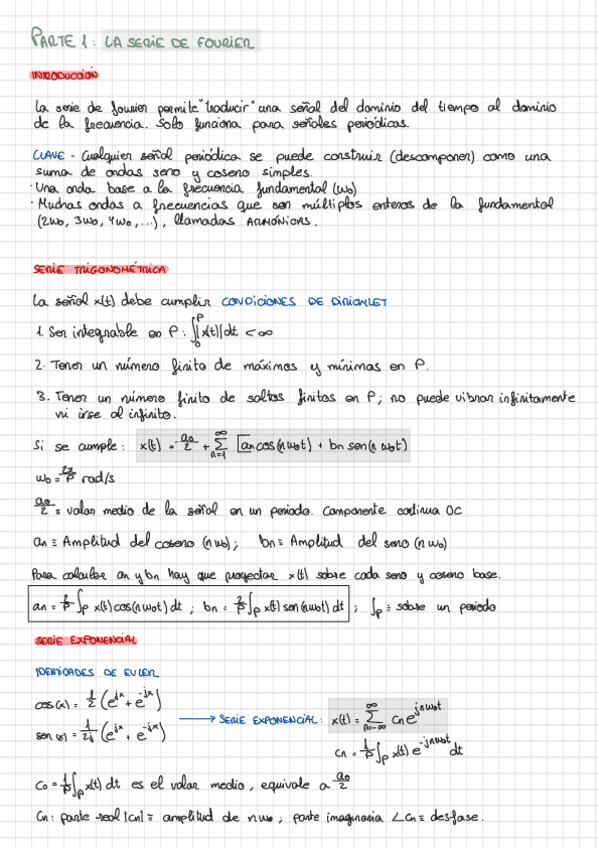 PARTE 1: LA SERIE DE FOURIER
INTRODUCCIÓN
La serie de fourier permite "traducir" una señal del dominio del tiempo al dominio
de la frecuencia. Solo funciona para señales periódicas.
CLAVE - Cualquier señal periódica se puede construir (descomponer) como una
suma de ondas seno y coseno simples.
· Una onda base a la frecuencia fundamental (ω₀)
· Muchas ondas a frecuencias que son múltiplos enteros de la fundamental
(2ω₀, 3ω₀, 4ω₀, ...), llamadas ARMÓNICAS.
SERIE TRIGONOMÉTRICA
La señal x(t) debe cumplir CONDICIONES DE DIRICHLET
1. Ser integrable en P: ∫₀ᴾ|x(t)|dt < ∞
2. Tener un número finito de máximos y mínimas en P.
3. Tener un número finito de saltos finitos en P; no puede vibrar infinitamente
ni irse al infinito.
Si se cumple: x(t) = a₀/2 + Σₙ₌₁^∞ [an cos(nω₀t) + bn sen(nω₀t)
ω₀ = 2π/P rad/s
a₀/2 = valor medio de la señal en un periodo. Componente continua DC
an ≡ Amplitud del coseno (nω₀); bn ≡ Amplitud del seno (nω₀)
Para calcular an y bn hay que proyectar x(t) sobre cada seno y coseno base.
an = 2/P ∫ₚ x(t) cos(nω₀t) dt ; bn = 2/P ∫ₚ x(t) sen(nω₀t) dt ; ∫ₚ ≡ sobre un periodo
SERIE EXPONENCIAL
IDENTIDADES DE EULER
cos(x) = 1/2 (e^jx + e^-jx)
sen(x) = 1/2j (e^jx + e^-jx)
→ SERIE EXPONENCIAL: x(t) = Σₙ₌₋∞^∞ Cn e^jnω₀t
Cn = 1/P ∫ₚ x(t) e^-jnω₀t dt
C₀ = 1/P ∫ₚ x(t) dt es el valor medio, equivale a a₀/2
Cn: parte real |Cn| ≡ amplitud de nω₀; parte imaginaria ∠Cn ≡ desfase.